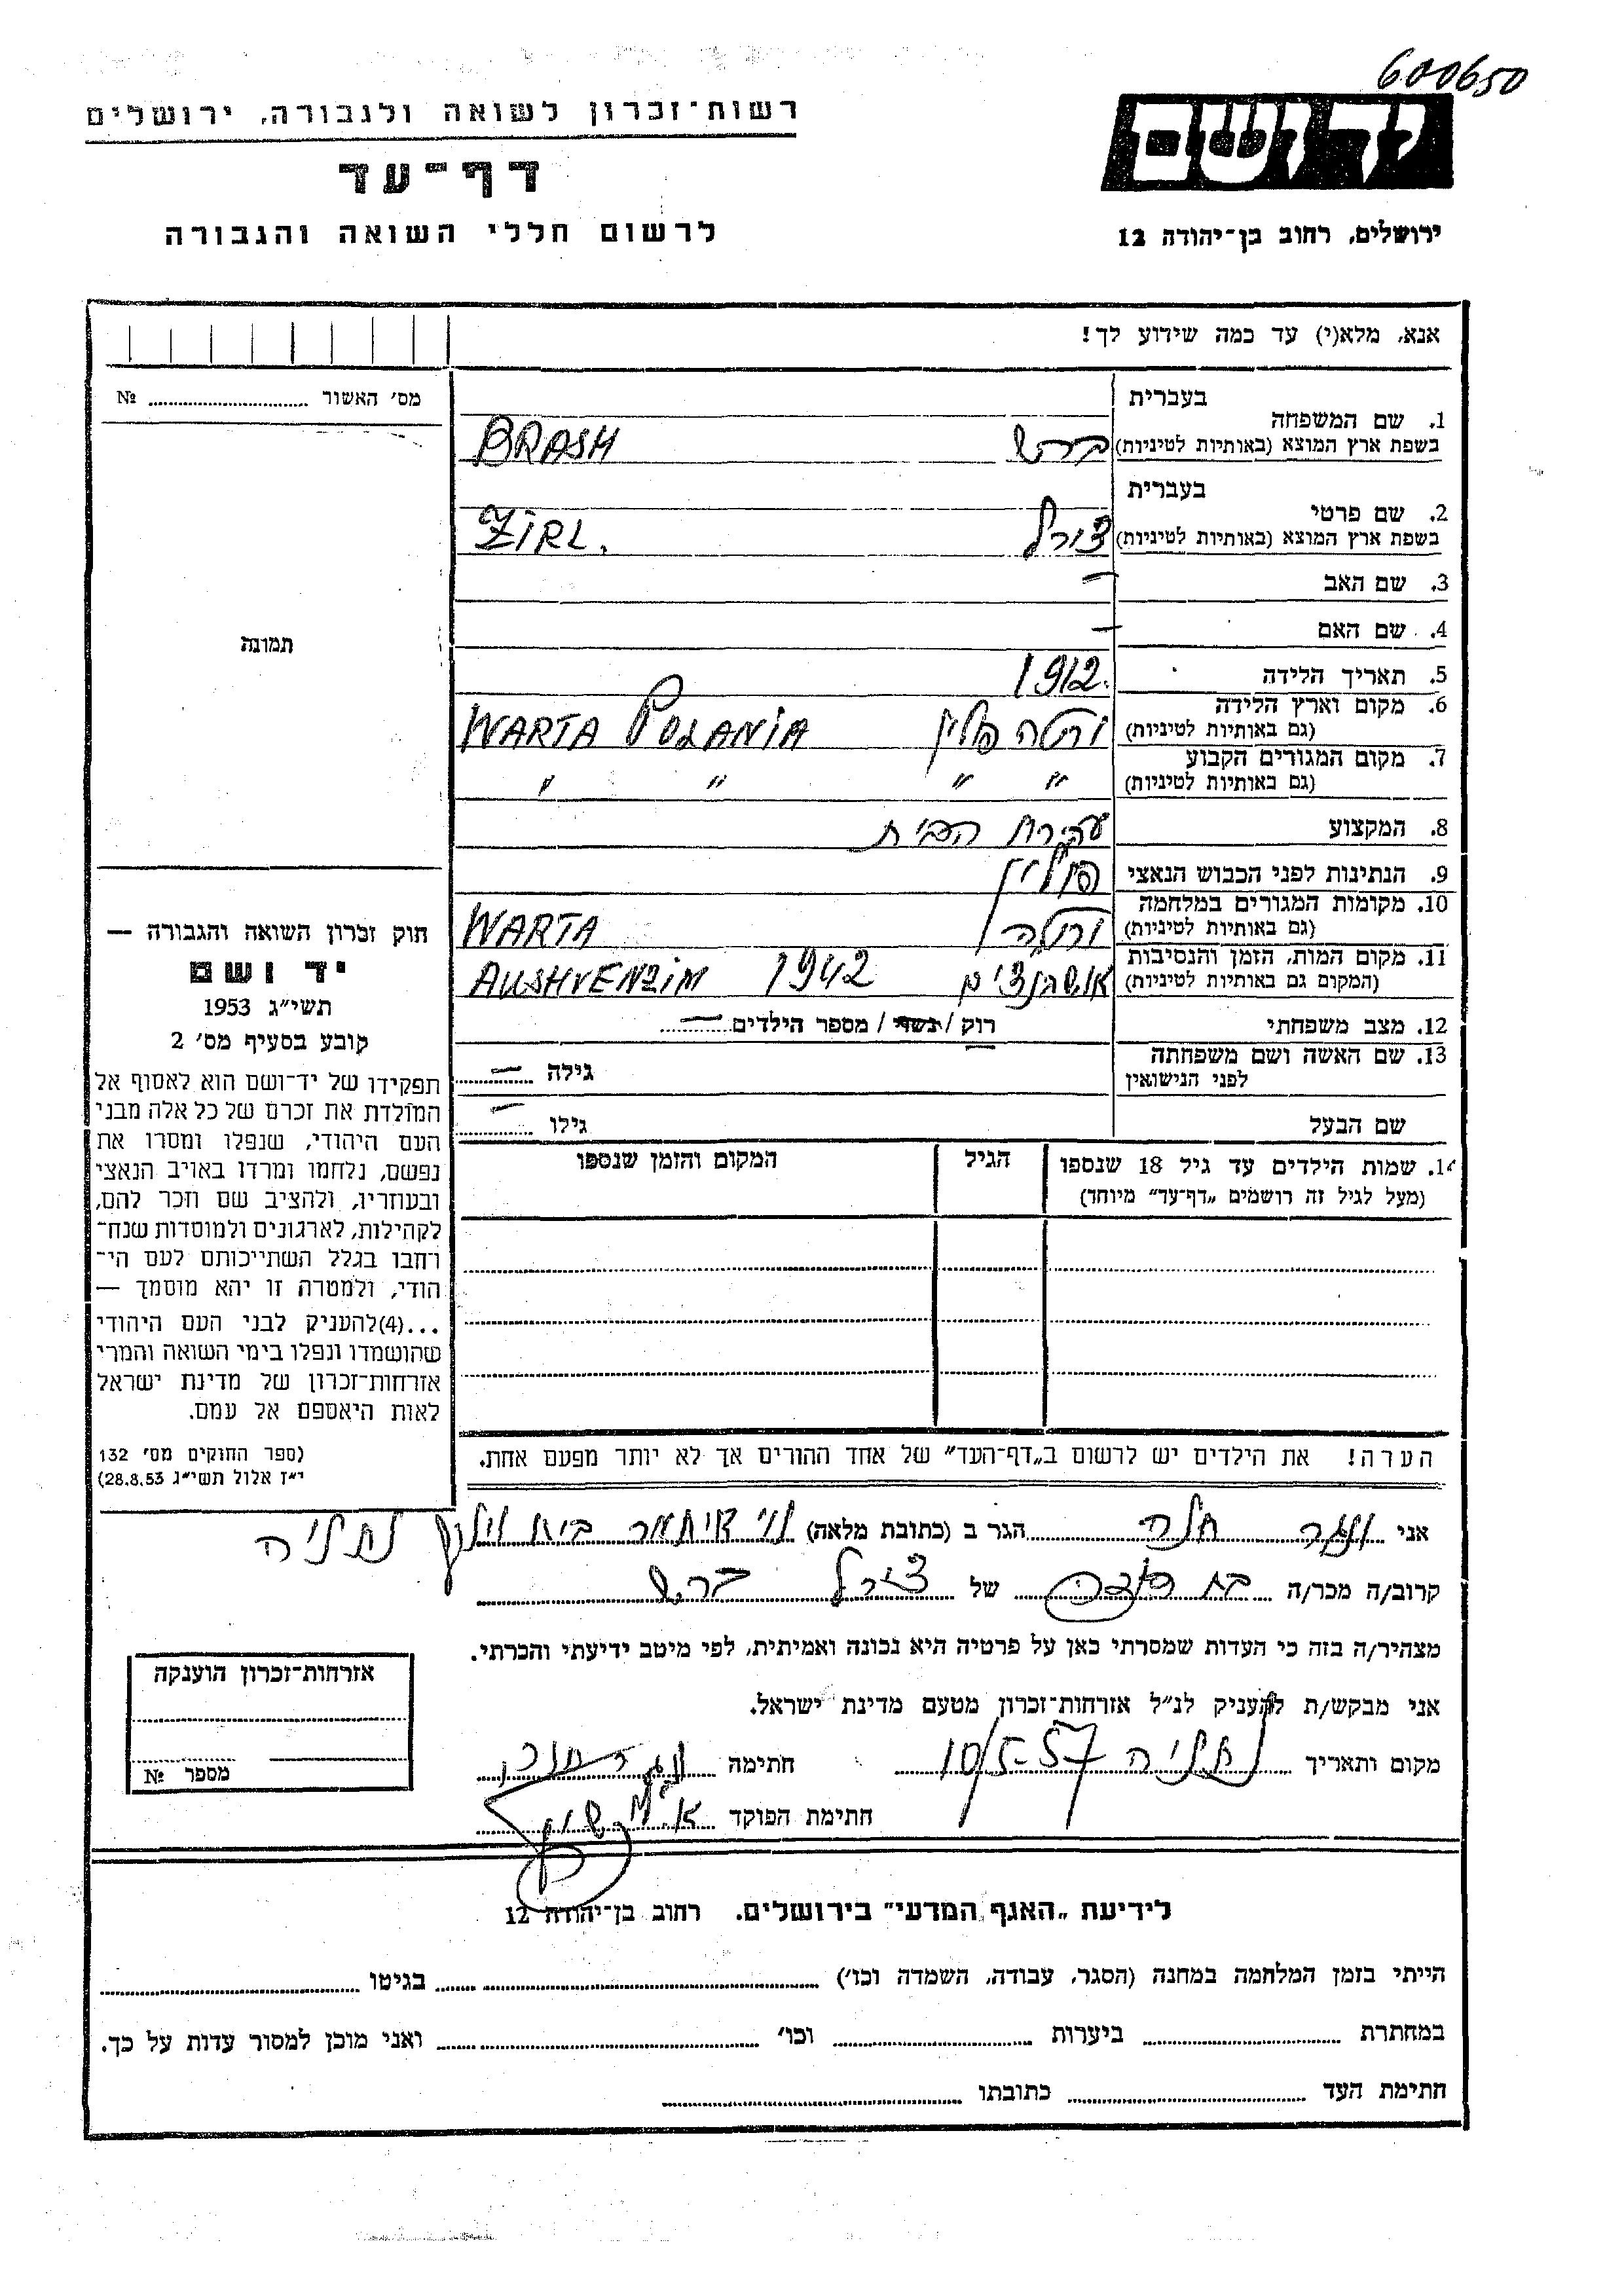 600650
יד ושם
ירושלים, רחוב בן-יהודה 12
רשות-זכרון לשואה ולגבורה, ירושלים
דף-עד
לרשום חללי השואה והגבורה
אנא, מלא(י) עד כמה שידוע לך!
מס׳ האשור № 
תמונה
בעברית
1. שם המשפחה
בשפת ארץ המוצא (באותיות לטיניות) ברש BRASH
בעברית
2. שם פרטי
בשפת ארץ המוצא (באותיות לטיניות) צירל ZIRL.
3. שם האב –
4. שם האם –
5. תאריך הלידה 1912.
6. מקום וארץ הלידה
(גם באותיות לטיניות) ורטה פולין WARTA POLANIA
7. מקום המגורים הקבוע
(גם באותיות לטיניות) " " " "
8. המקצוע עקרת הבית
9. הנתינות לפני הכבוש הנאצי פולין
10. מקומות המגורים במלחמה
(גם באותיות לטיניות) ורטה WARTA
11. מקום המות, הזמן והנסיבות
(המקום גם באותיות לטיניות) אושבנצים 1942 AUSHVENZIM
12. מצב משפחתי רוק / נשוי / מספר הילדים –
13. שם האשה ושם משפחתה
לפני הנישואין – גילה –
שם הבעל גילו –
14. שמות הילדים עד גיל 18 שנספו
(מעל לגיל זה רושמים „דף-עד" מיוחד)
הגיל
המקום והזמן שנספו
חוק זכרון השואה והגבורה —
יד ושם
תשי״ג 1953
קובע בסעיף מס׳ 2
תפקידו של יד-ושם הוא לאסוף אל
המולדת את זכרם של כל אלה מבני
העם היהודי, שנפלו ומסרו את
נפשם, נלחמו ומרדו באויב הנאצי
ובעוזריו, ולהציב שם וזכר להם,
לקהילות, לארגונים ולמוסדות שנח-
רחבו בגלל השתייכותם לעם הי-
הודי, ולמטרה זו יהא מוסמך —
...(4)להעניק לבני העם היהודי
שהושמדו ונפלו בימי השואה והמרי
אזרחות-זכרון של מדינת ישראל
לאות היאספם אל עמם.
(ספר החוקים מס׳ 132
י״ז אלול תשי״ג 28.8.53)
הערה! את הילדים יש לרשום ב„דף-העד" של אחד ההורים אך לא יותר מפעם אחת.
אני חנה הגר ב (כתובת מלאה) נתניה
קרוב/ה מכר/ה בת דודה של צירל ברש
מצהיר/ה בזה כי העדות שמסרתי כאן על פרטיה היא נכונה ואמיתית, לפי מיטב ידיעתי והכרתי.
אני מבקש/ת להעניק לנ״ל אזרחות-זכרון מטעם מדינת ישראל.
מקום ותאריך נתניה 10/5-57 חתימה
חתימת הפוקד
אזרחות-זכרון הוענקה
מספר №
לידיעת „האגף המדעי" בירושלים. רחוב בן-יהודה 12
הייתי בזמן המלחמה במחנה (הסגר, עבודה, השמדה וכו׳) בגיטו
במחתרת ביערות וכו׳ ואני מוכן למסור עדות על כך.
חתימת העד כתובתו